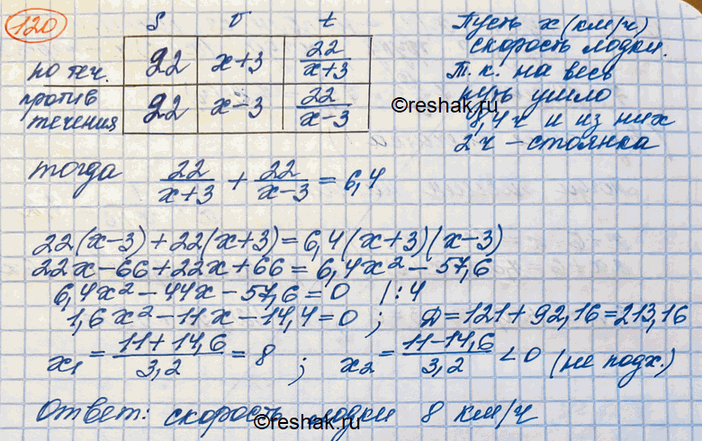 120
S υ t
по теч. 22 x+3 22/(x+3)
против течения 22 x-3 22/(x-3)
Пусть x (км/ч)
скорость лодки.
Т.к. на весь
путь ушло
8,4ч и из них
2ч - стоянка
©reshak.ru
тогда 22/(x+3) + 22/(x-3) = 6,4
22(x-3)+22(x+3)=6,4(x+3)(x-3)
22x-66+22x+66=6,4x²-57,6
6,4x²-44x-57,6=0 /:4
1,6x²-11x-14,4=0; Д=121+92,16=213,16
x₁ = (11+14,6)/3,2 = 8; x₂ = (11-14,6)/3,2 <0 (не подх.)
Ответ: скорость лодки 8 км/ч
©reshak.ru